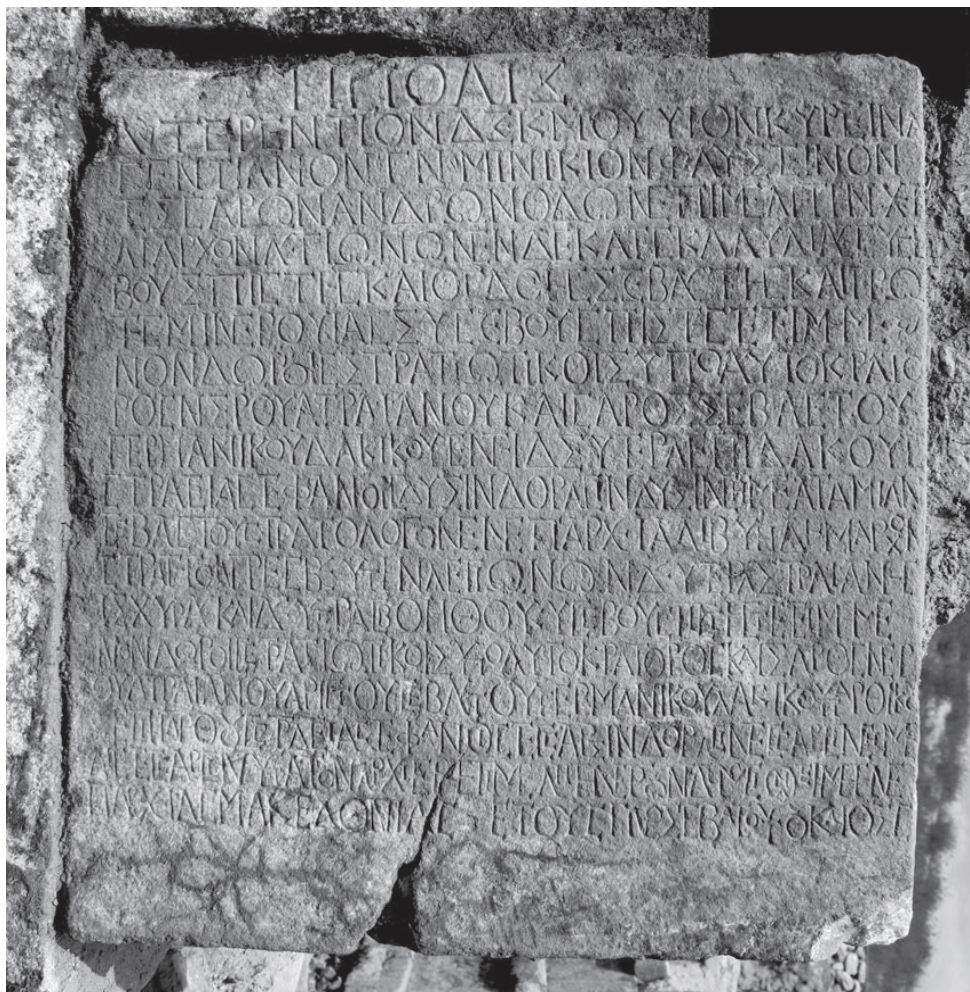 Η ΠΟΛΙΣ
Δ ΤΕΡΕΝΤΙΟΝ ΔΕΚΜΟΥ ΥΙΟΝ ΚΥΡΕΙΝΑ
ΓΕΝΤΙΑΝΟΝ ΓΝ ΜΙΝΙΚΙΟΝ ΦΑΥΣΤΙΝΟΝ
ΤΕΣΣΑΡΩΝ ΑΝΔΡΩΝ ΟΔΩΝ ΕΠΙΜΕΛΗΤΗΝ ΧΕΙ
ΛΙΑΡΧΟΝ ΛΕΓΙΩΝΩΝ ΕΝΔΕΚΑΤΗΣ ΚΛΑΥΔΙΑΣ ΕΥΣΕ
ΒΟΥΣ ΠΙΣΤΗΣ ΚΑΙ ΟΓΔΟΗΣ ΣΕΒΑΣΤΗΣ ΚΑΙ ΠΡΩ
ΤΗΣ ΜΙΝΕΡΟΥΙΑΣ ΕΥΣΕΒΟΥΣ ΠΙΣΤΗΣ ΤΕΤΙΜΗΜΕ
ΝΟΝ ΔΩΡΟΙΣ ΣΤΡΑΤΙΩΤΙΚΟΙΣ ΥΠΟ ΑΥΤΟΚΡΑΤΟ
ΡΟΣ ΝΕΡΟΥΑ ΤΡΑΙΑΝΟΥ ΚΑΙΣΑΡΟΣ ΣΕΒΑΣΤΟΥ
ΓΕΡΜΑΝΙΚΟΥ ΔΑΚΙΚΟΥ ΕΝ ΤΗ ΔΕΥΤΕΡΑ ΕΠΙ ΔΑΚΟΥΣ
ΣΤΡΑΤΙΑ ΣΤΕΦΑΝΟΙΣ ΔΥΣΙΝ ΔΟΡΑΣΙΝ ΔΥΣΙΝ ΤΑΜΙΑΝ
ΣΕΒΑΣΤΟΥ ΣΤΡΑΤΟΛΟΓΟΝ ΕΝ ΕΠΑΡΧΙΑ ΛΙΒΥΗ ΔΗΜΑΡΧΟΝ
ΣΤΡΑΤΗΓΟΝ ΠΡΕΣΒΕΥΤΗΝ ΛΕΓΙΩΝΩΝ ΔΕΥΤΕΡΑΣ ΤΡΑΙΑΝΗΣ
ΙΣΧΥΡΑΣ ΚΑΙ ΔΕΥΤΕΡΑΣ ΒΟΗΘΟΥ ΕΥΣΕΒΟΥΣ ΠΙΣΤΗΣ ΤΕΤΙΜΗΜΕ
ΝΟΝ ΔΩΡΟΙΣ ΣΤΡΑΤΙΩΤΙΚΟΙΣ ΥΠΟ ΑΥΤΟΚΡΑΤΟΡΟΣ ΚΑΙΣΑΡΟΣ ΝΕΡ
ΟΥΑ ΤΡΑΙΑΝΟΥ ΑΡΙΣΤΟΥ ΣΕΒΑΣΤΟΥ ΓΕΡΜΑΝΙΚΟΥ ΔΑΚΙΚΟΥ ΠΑΡΘΙΚΟΥ
ΕΠΙ ΠΑΡΘΟΥΣ ΣΤΡΑΤΙΑ ΣΤΕΦΑΝΟΙΣ ΤΕΣΣΑΡΣΙΝ ΔΟΡΑΣΙΝ ΤΕΣΣΑΡΣΙΝ
ΤΕΣΣΑΡΣΙΝ ΥΠΑΤΟΝ
ΕΠΑΡΧΙΑΣ ΜΑΚΕΔΟΝΙΑΣ ΕΤΟΥΣ ΣΕΒΑΣΤΟΥ